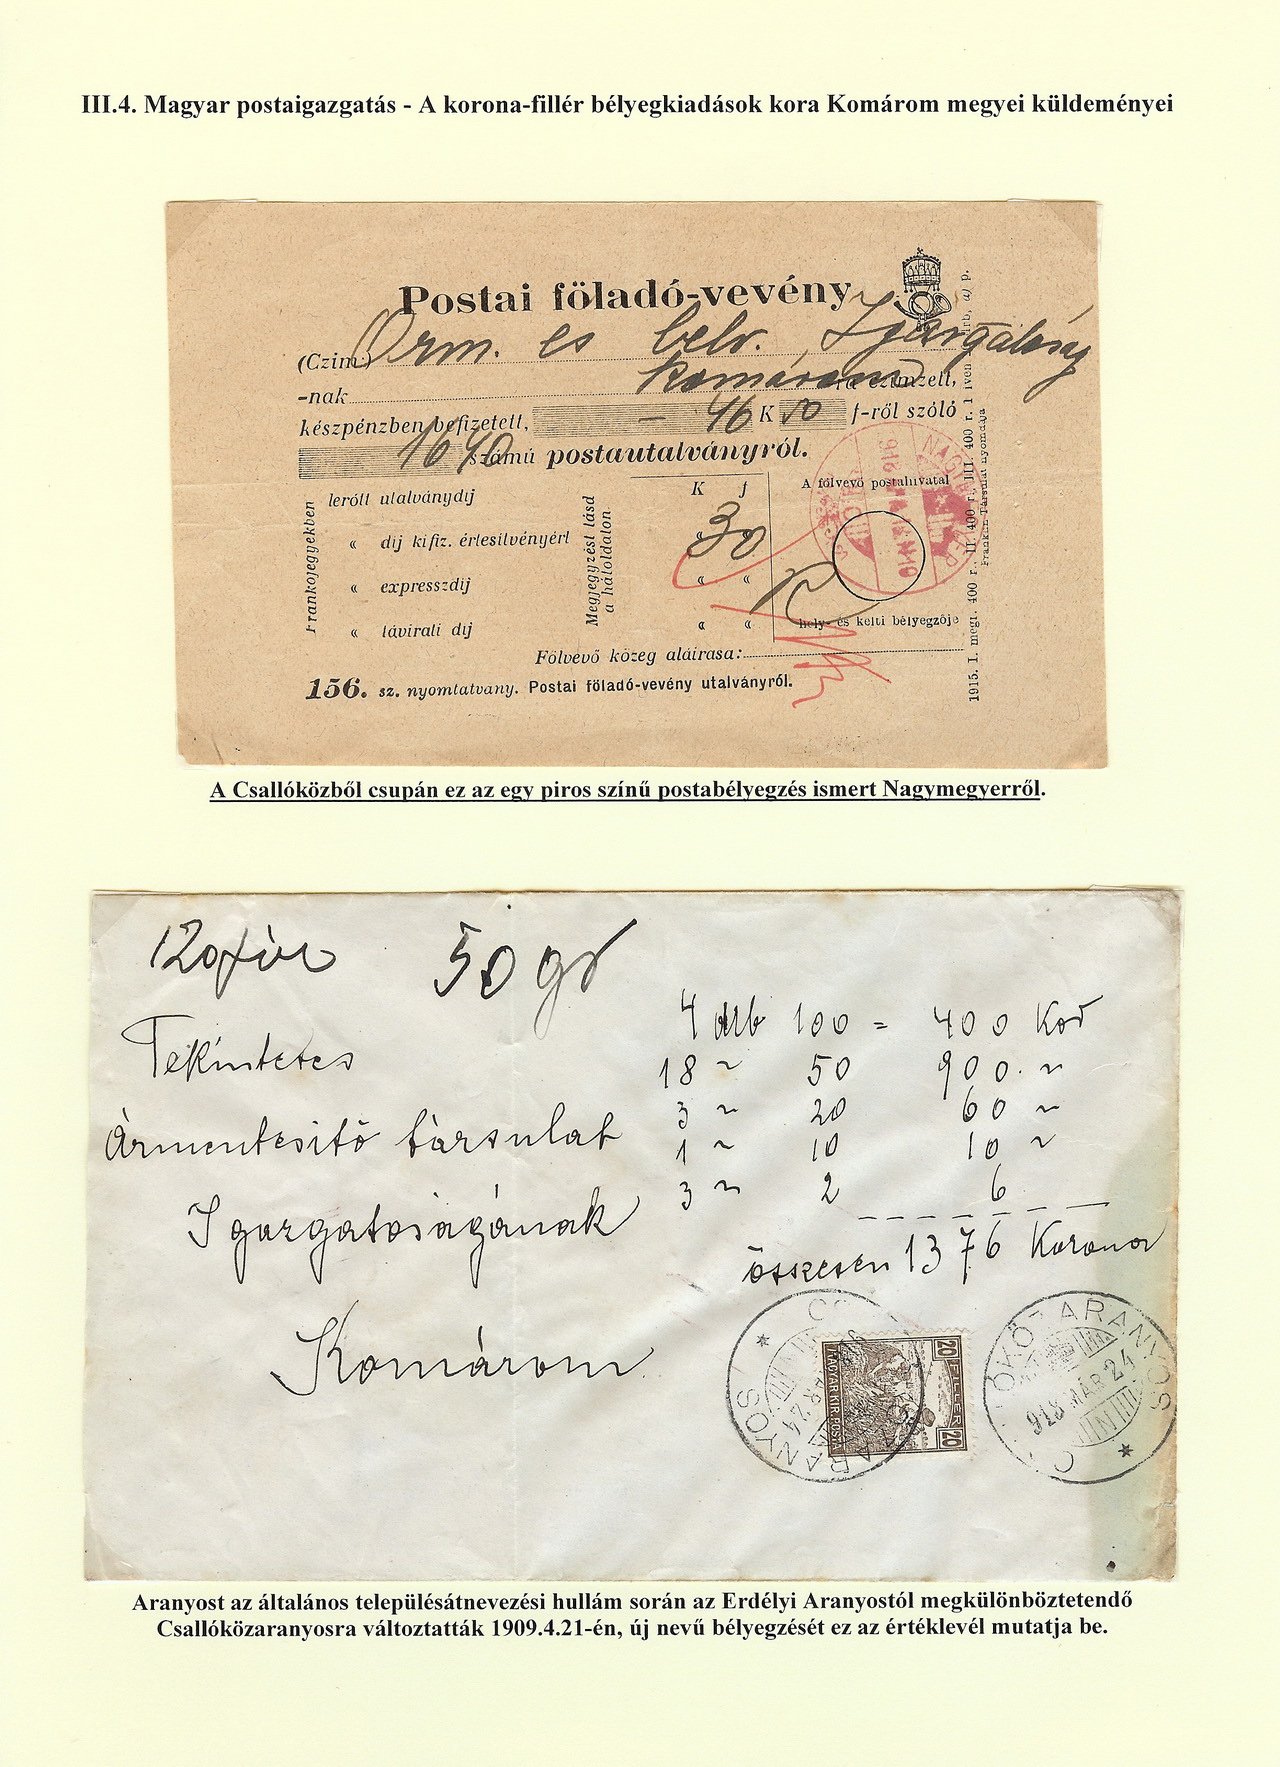 III.4. Magyar postaigazgatás - A korona-fillér bélyegkiadások kora Komárom megyei küldeményei
Postai föladó-vevény
(Czim:) Árm. es belv. Igazgatóság
-nak Komárom czimzett,
készpénzben befizetett, — 46 K 50 f-ről szóló
1640 számú postautalványról.
Frankojegyekben
lerótt utalványdíj
« díj kifiz. értesítvényért
« expresszdíj
« távirati díj
Megjegyzést lásd a hátoldalon.
K f
30
« «
« «
A fölvevő postahivatal
hely- és kelti bélyegzője
Fölvevő közeg aláirása:
156. sz. nyomtatvány. Postai föladó-vevény utalványról.
1915. I. megr. 400 r., II. 400 r., III. 400 r. 1 iven
Franklin-Társulat nyomdája
A Csallóközből csupán ez az egy piros színű postabélyegzés ismert Nagymegyerről.
50 gr
Tekintetes
Ármentesitő társulat
Igazgatoságának
Komárom
4 drb 100 = 400 Kor
18 " 50 900 "
3 " 20 60 "
1 " 10 10 "
3 " 2 6
összesen 1376 Korona
20 FILLÉR 20
MAGYAR KIR. POSTA
918 MÁR 24
Aranyost az általános településátnevezési hullám során az Erdélyi Aranyostól megkülönböztetendő
Csallóközaranyosra változtatták 1909.4.21-én, új nevű bélyegzését ez az értéklevél mutatja be.